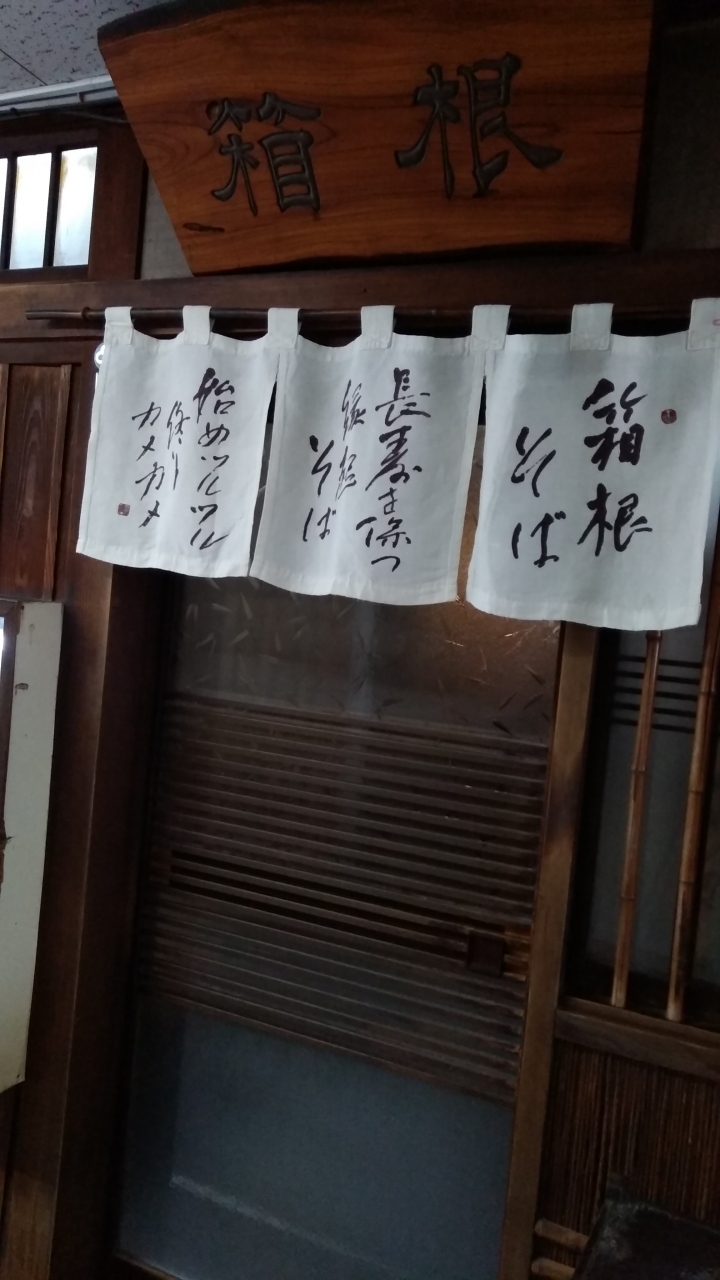 箱根
箱根
そば
長寿を保つ
箱根
そば
始めツルツル
終り
カメカメ